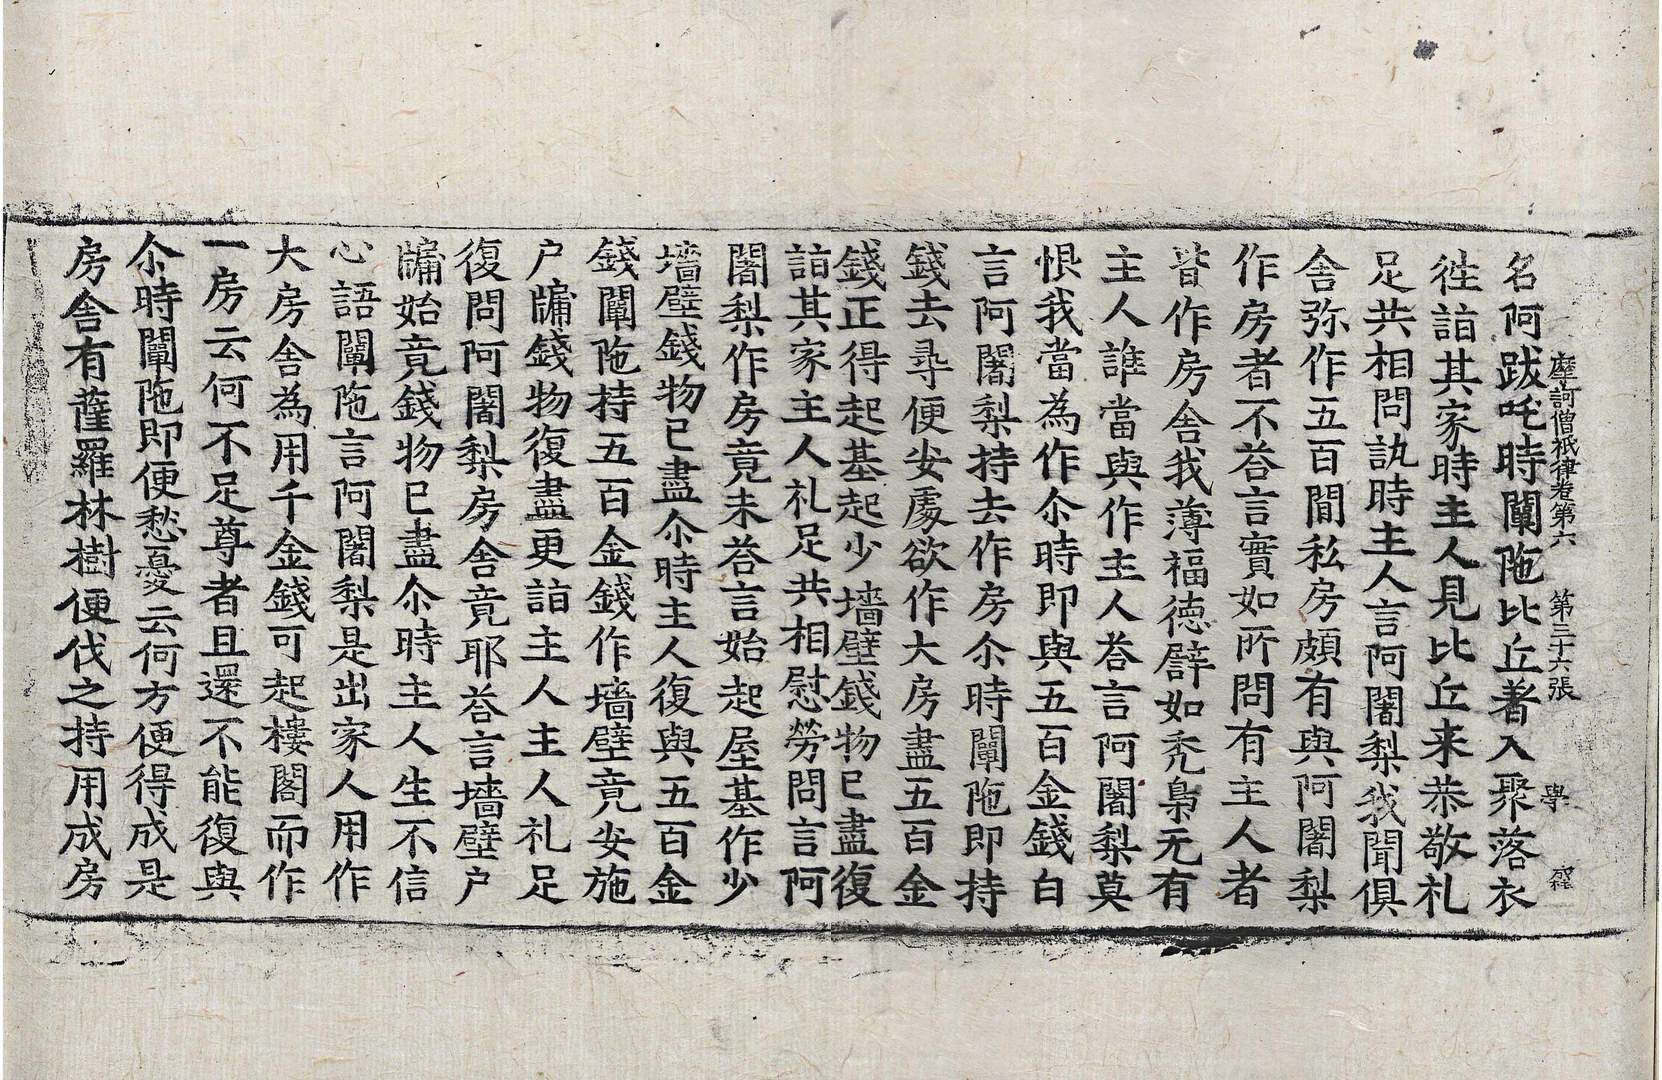 摩訶僧祇律卷第六 第三十六張 學
名阿跋吒時闡陁比丘著入聚落衣
徃詣其家時主人見比丘来恭敬礼
足共相問訊時主人言阿闍梨我聞俱
舎弥作五百間私房頗有與阿闍梨
作房者不荅言實如所問有主人者
皆作房舎我薄福德譬如秃梟无有
主人誰當與作主人荅言阿闍梨莫
恨我當為作尒時即與五百金錢白
言阿闍梨持去作房尒時闡陁即持
錢去尋便安處欲作大房盡五百金
錢正得起基起少墻壁錢物已盡復
詣其家主人礼足共相慰勞問言阿
闍梨作房竟未荅言始起屋基作少
墻壁錢物已盡尒時主人復與五百金
錢闡陁持五百金錢作墻壁竟安施
户牖錢物復盡更詣主人主人礼足
復問阿闍梨房舎竟耶荅言墻壁户
牖始竟錢物已盡尒時主人生不信
心語闡陁言阿闍梨是出家人用作
大房舎為用千金錢可起樓閣而作
一房云何不足尊者且還不能復與
尒時闡陁即便愁憂云何方便得成是
房舎有薩羅林樹便伐之持用成房